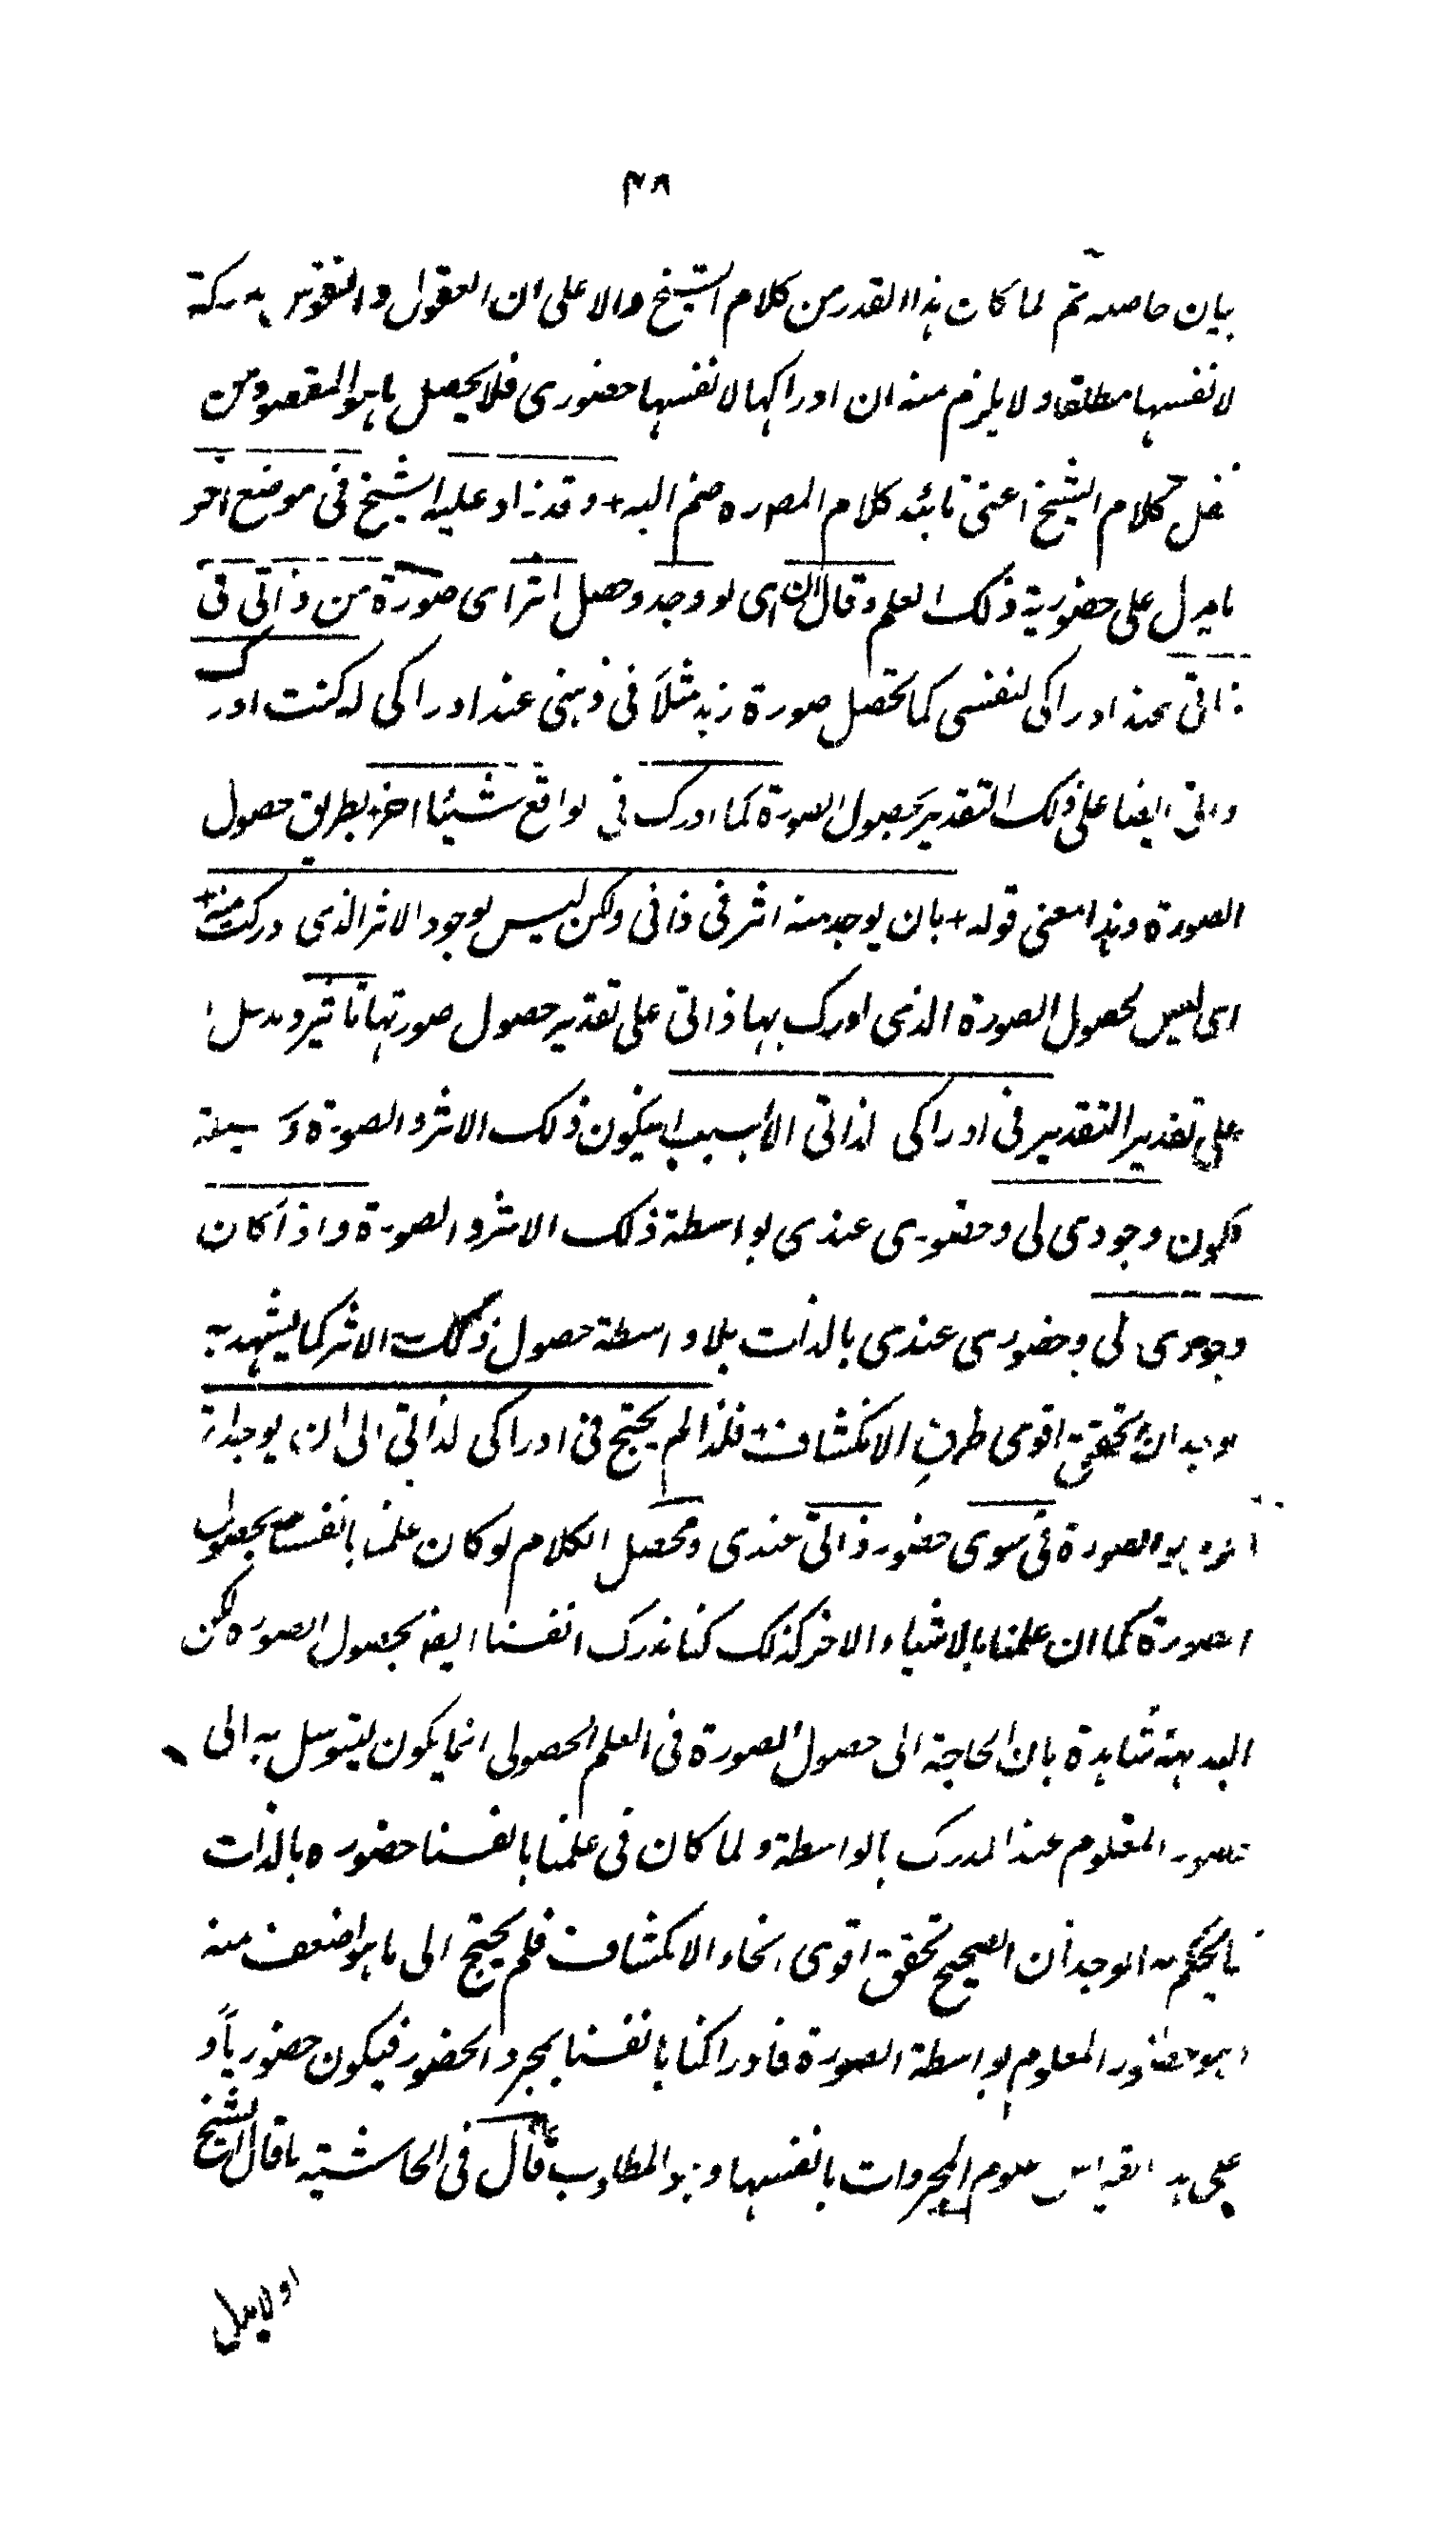 ٤٨
بيان حاصله ثم لما كان هذا القدر من كلام الشيخ دالا على ان العقول والنفوس مدركة
لانفسها مطلقا ولا يلزم منه ان ادراكها لانفسها حضورى فلا يحصل ما هو المقصود من
نقل كلام الشيخ اعنى تائيد كلام المص ره ضم اليه + وقد زاد عليه الشيخ فى موضع اخر
ما يدل على حضورية ذلك العلم وقال ان اى لو وجد وحصل اثر اى صورة من ذاتى فى
ذاتى عند ادراكى لنفسى كما تحصل صورة زيد مثلا فى ذهنى عند ادراكى له كنت ادرك
ذاتى ايضا على ذلك التقدير بحصول الصورة كما ادرك فى الواقع شيئا اخر بطريق حصول
الصورة وهذا معنى قوله + بان يوجد منه اثر فى ذاتى ولكن ليس لوجود الاثر الذى ادركت منه +
اى ليس لحصول الصورة الذى ادرك بها ذاتى على تقدير حصول صورتها تاثير ومدخل
على تقدير التقدير فى ادراكى لذاتى الا بسبب ان يكون ذلك الاثر والصورة وسيلة
فيكون وجودى لى وحضورى عندى بواسطة ذلك الاثر والصورة واذا كان
وجودى لى وحضورى عندى بالذات بلا واسطة حصول ذلك الاثر كما يشهد به
الوجدان تحقق اقوى طرق الانكشاف + فلذا لم يحتج فى ادراكى لذاتى الى ان يوجد اثر
اخر هو الصورة فى سوى حضور ذاتى عندى ومحصل الكلام لو كان علمنا بانفسنا بحصول
الصورة كما ان علمنا بالاشياء الاخر كذلك كنا ندرك انفسنا ايضا بحصول الصورة لكن
البديهة شاهدة بان الحاجة الى حصول الصورة فى العلم الحصولى انما يكون ليتوسل به الى
حضور المعلوم عند المدرك بالواسطة ولما كان فى علمنا بانفسنا حضوره بالذات
كما يحكم به الوجدان الصحيح تحقق اقوى انحاء الانكشاف فلم يحتج الى ما هو اضعف منه
اى هو حضور المعلوم بواسطة الصورة فادراكنا بانفسنا بمجرد الحضور فيكون حضوريا و
على هذا القياس علوم المجردات بانفسها وهو المطلوب قال فى الحاشية ما قال الشيخ
اولا يدل